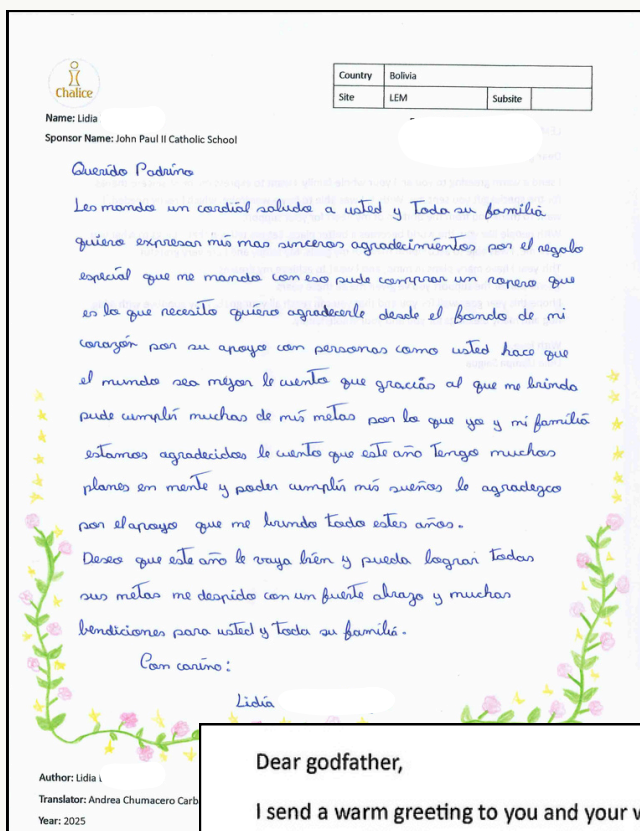 Chalice
Country Bolivia
Site LEM Subsite
Name: Lidia
Sponsor Name: John Paul II Catholic School
Querido Padrino
Les mando un cordial saludo a usted y toda su familia
quiero expresar mis mas sinceros agradecimientos por el regalo
especial que me mando con eso pude comprar un ropero que
es lo que necesito quiero agradecerle desde el fondo de mi
corazón por su apoyo con personas como usted hace que
el mundo sea mejor le cuento que gracias al que me brindo
pude cumplir muchas de mis metas por lo que yo y mi familia
estamos agradecidos le cuento que este año tengo muchos
planes en mente y poder cumplir mis sueños le agradezco
por el apoyo que me brindo todo estes años.
Deseo que este año le vaya bien y pueda lograr todas
sus metas me despido con un fuerte abrazo y muchas
bendiciones para usted y toda su familia.
Con carino:
Lidia
Author: Lidia
Translator: Andrea Chumacero Carb
Year: 2025
Dear godfather,
I send a warm greeting to you and your